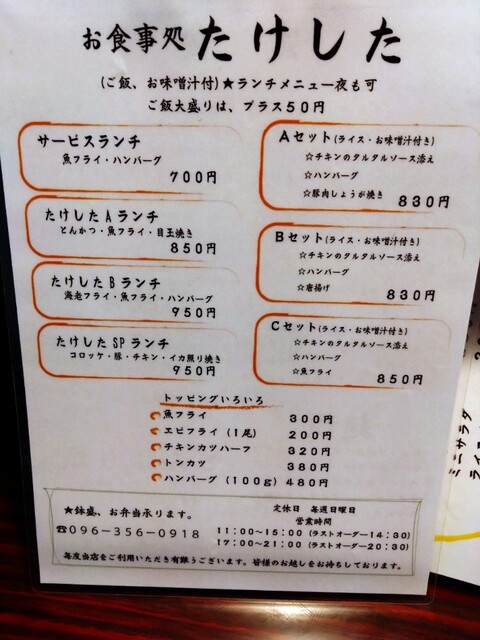 お食事処 たけした
(ご飯、お味噌汁付)★ランチメニュー夜も可
ご飯大盛りは、プラス50円
サービスランチ
魚フライ・ハンバーグ
700円
たけしたAランチ
とんかつ・魚フライ・目玉焼き
850円
たけしたBランチ
海老フライ・魚フライ・ハンバーグ
950円
たけしたSPランチ
コロッケ・豚・チキン・イカ照り焼き
950円
Aセット(ライス・お味噌汁付き)
☆チキンのタルタルソース添え
☆ハンバーグ
☆豚肉しょうが焼き
830円
Bセット(ライス・お味噌汁付き)
☆チキンのタルタルソース添え
☆ハンバーグ
☆唐揚げ
830円
Cセット(ライス・お味噌汁付き)
☆チキンのタルタルソース添え
☆ハンバーグ
☆魚フライ
850円
トッピングいろいろ
魚フライ 300円
エビフライ(1尾) 200円
チキンカツハーフ 320円
トンカツ 380円
ハンバーグ(100g) 480円
★鉢盛、お弁当承ります。
☎096-356-0918
定休日 毎週日曜日
営業時間
11:00〜15:00(ラストオーダー14:30)
17:00〜21:00(ラストオーダー20:30)
毎度当店をご利用いただき有難うございます。皆様のお越しをお待ちしております。
ミニサラダ